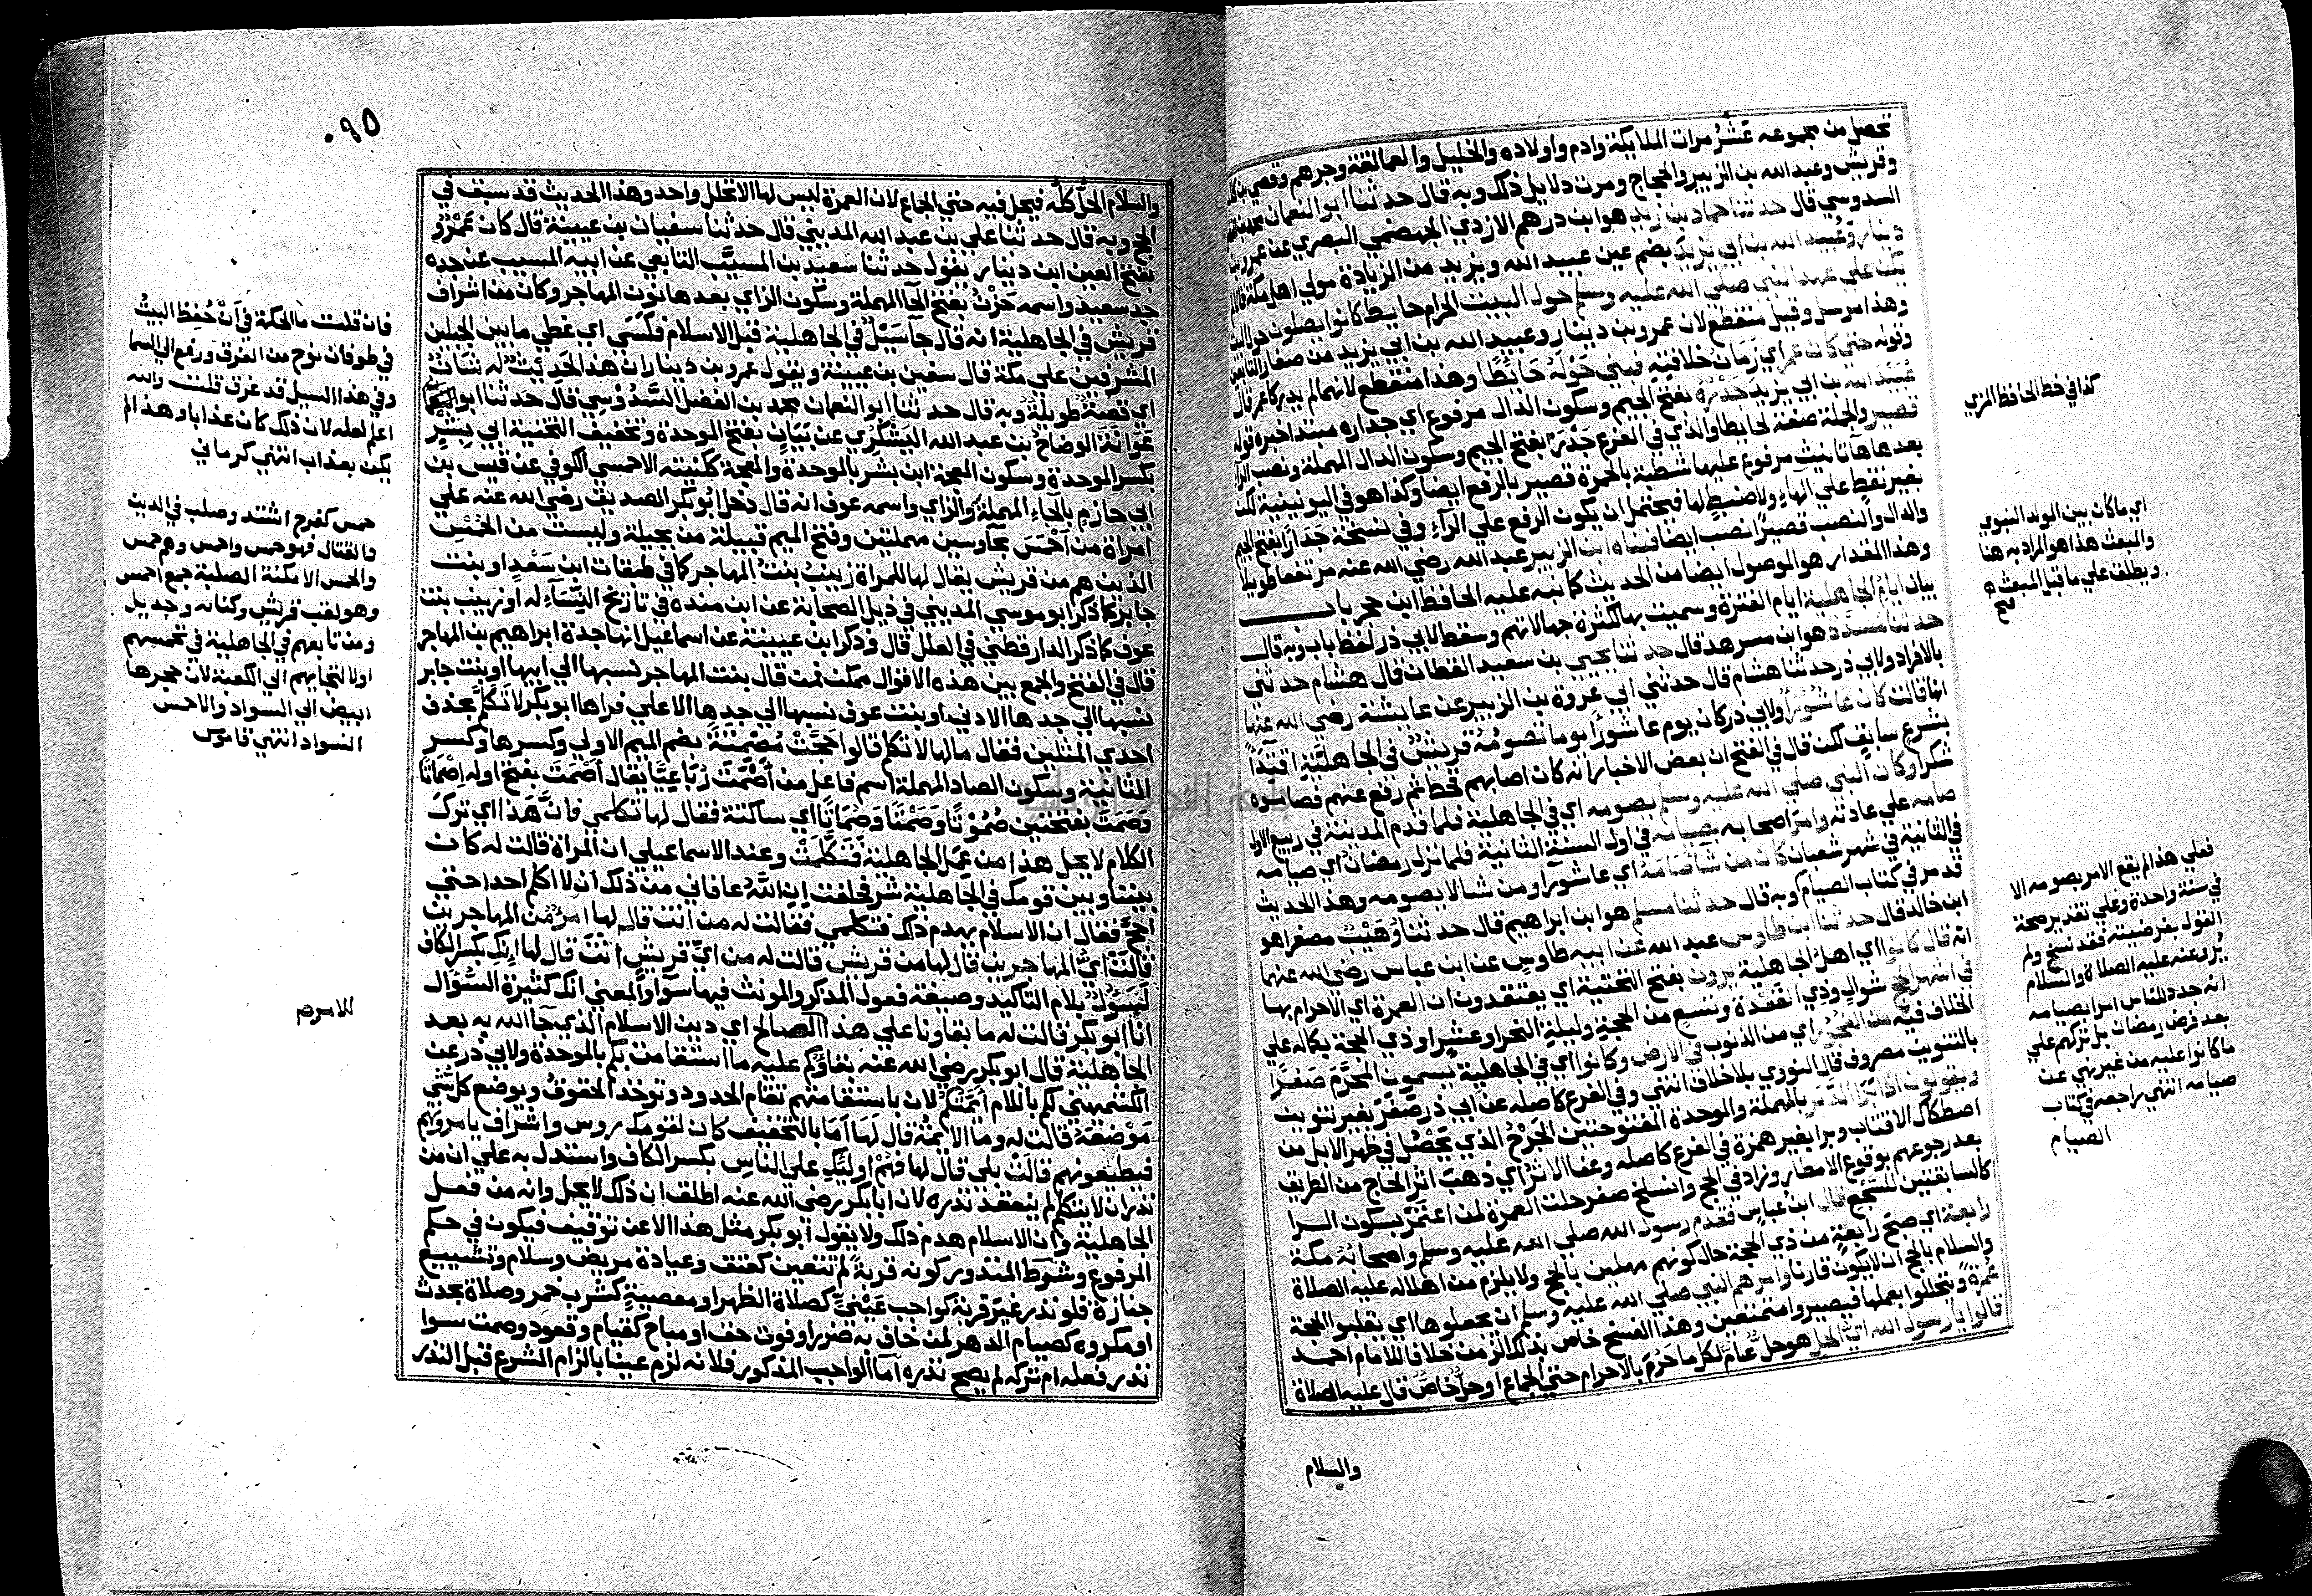 تحصل من مجموعه عَشْرُ مرات الملايكة وادم واولاده والخليل والعمالقة وجرهم وقصي بن كلاب
وقريش وعبد الله بن الزبير والحجاج ومرت دلايل ذلك وبه قال حدثنا ابو النعمان محمد بن
السدوسي قال حدثنا حماد بن زيد هو ابن درهم الازدي الجهضمي البصري عن عمرو بن
دينار وعُبيد الله بن ابي يزيد بضم عين عبيد الله ويزيد من الزيادة مولى اهل مكة قالا لم
يكن على عهد النبي صلى الله عليه وسلم حول البيت الحرام حايط كانوا يصلون حول البيت
وهذا مرسل وقيل منقطع لان عمرو بن دينار وعبيد الله بن ابي يزيد من صغار التابعين
وقوله حتى كان عمر اي زمان خلافته فبنى حَوْلَهُ حَايطًا وهذا منقطع لانهما لم يدركا عمر قال
عُبَيْدُ الله بن ابي يزيد جَدْرُهُ بفتح الجيم وسكون الدال مرفوع اي جداره مبتدا خبره قوله
قصير والجملة صفة لحايطا والذي في الفرع جَدْرَ بفتح الجيم وسكون الدال المهملة ونصب الراء
بعدها هاتانيث مرفوع عليها شطبة بالحمرة قصير بالرفع ايضا وكذا هو في اليونينية لكن
بغير نقط على الهاء ولا ضبط لها فيحتمل ان يكون الرفع على الراء وفي نسخة جَدَارًا بفتح الجيم
والدال والنصب قصيرًا نصب ايضا فبناه ابن الزبير عبد الله رضي الله عنه مرتفعا طويلا
وهذا المقدار هو الموصول ايضا من الحديث كما نبه عليه الحافظ ابن حجر باب
بيان ايام الجاهلية ايام الفترة وسميت بها لكثرة جهالاتهم وسقط لابي ذر لفظ باب وبه قال
حدثنا مسدد هو ابن مسرهد قال حدثنا يحيي بن سعيد القطان قال هشام حدثني
بالافراد ولابي ذر حدثنا هشام قال حدثني ابي عروة بن الزبير عن عايشة رضي الله عنها
انها قالت كان عاشورا ولابي ذر كان يوم عاشورا يوما تصومُهُ قريش في الجاهلية اقتداً
بشرع سابق لكن قال في الفتح ان بعض الاخبار انه كان اصابهم قحط ثم رفع عنهم فصاموه
شكرا وكان النبي صلى الله عليه وسلم يصومه اي في الجاهلية فلما قدم المدينة في ربيع الاول
صامه على عادته وامر اصحابه بصيامه في اول السنة الثانية فلما نزل رمضان اي صيامه
في الثانية في شهر شعبان كان من شا صامه اي عاشورا ومن شا لا يصومه وهذا الحديث
قد مر في كتاب الصيام وبه قال حدثنا مسلم هو ابن ابراهيم قال حدثنا وُهَيْبٌ مصغرا هو
ابن خالد قال حدثنا ابن طاوس عبد الله عن ابيه طاوس عن ابن عباس رضي الله عنهما
انه قال كانوا اي اهل الجاهلية يرون بفتح التحتية اي يعتقدون ان العمرة اي الاحرام بها
في اشهر الحج شوال وذي القعدة وتسع من الحجة وليلة النحر او عشر او ذي الحجة بكماله على
الخلاف فيه من الفجور اي من الذنوب في الارض وكانوا اي في الجاهلية يسمون المحرّم صَفرًا
بالتنوين مصروف قال النووي بلا خلاف انتهى وفي الفرع كاصله عن ابي ذر صَفَرَ بغير تنوين
ويقولون اذا برا الدبر بالمهملة والموحدة المفتوحتين الجَرْحُ الذي يحصل في ظهر الابل من
اصطكاك الاقتاب وبرا بغير همزة في الفرع كاصله وعفا الاثر اي ذهب اثر الحاج من الطريق
بعد رجوعهم بوقوع الامطار وزاد في الحج وانسلخ صفر حلت العمرة لمن اعتَمَرْ بسكون الرا
كالسابقتين للسجع قال ابن عباس فقدم رسول الله صلى الله عليه وسلم واصحابُهُ مكة
رابعة اي صبح رابعة من ذي الحجة حال كونهم مهلين بالحج ولا يلزم من اهلاله عليه الصلاة
والسلام بالحج ان لا يكون قارنا وامرهم النبي صلى الله عليه وسلم ان يجعلوها اي يقلبوا الحجة
عُمرةً ويتحللوا بعملها فيصيروا متمتعين وهذا الفسخ خاص بذلك الزمن خلافا للامام احمد
قالوا يا رسول الله ايّ الحل هو حلّ عامٌّ لكل ما حَرُمَ بالاحرام حتى الجماع او حلٌّ خاصٌّ قال عليه الصلاة
والسلام
كذا في خط الحافظ المزي
اي ما كان بين المولد النبوي
والمبعث هذا هو المراد به هنا
ويطلق على ما قبل المبعث
فتح
فعلى هذا لم يقع الامر بصومه الا
في سنة واحدة وعلى تقدير صحة
القول بفرضيته فقد نسخ ولم
يُرو عنه عليه الصلاة والسلام
انه جدد للناس امرا بصيامه
بعد فرض رمضان بل تركهم على
ما كانوا عليه من غير نهي عن
صيامه انتهى راجعه في كتاب
الصيام
٩٥٠
والسلام الحل كلُّه فيحل فيه حتى الجماع لان العمرة ليس لها الا تحلل واحد وهذا الحديث قد سبق في
الحج وبه قال حدثنا علي بن عبد الله المديني قال حدثنا سفيان بن عيينة قال كان عَمْرٌو
بفتح العين ابن دينار يقول حدثنا سَعيد بن المسيَّب التابعي عن ابيه المسيب عن جده
جد سعيد واسمه حَزْنٌ بفتح الحا المهملة وسكون الزاي بعدها نون المهاجر وكان من اشراف
قريش في الجاهلية انه قال جا سَيْلٌ في الجاهلية قبل الاسلام فكَسَى اي غطى ما بين الجبلين
المشرفين على مكة قال سفين بن عيينة ويقول عمرو بن دينار ان هذا الحَديثَ له شانٌ
اي قصة طويلة وبه قال حدثنا ابو النعمان محمد بن الفضل السَّدُوسِي قال حدثنا ابو
عَوَانة الوضاح بن عبد الله اليَشْكُري عن بَيَانٍ بفتح الموحدة وتخفيف التحتية ابي بِشْرٍ
بكسر الموحدة وسكون المعجمة ابن بشر بالموحدة والمعجمة ككنيته الاحمسي الكوفي عن قيس بن
ابي حازم بالحاء المهملة والزاي واسمه عوف انه قال دخل ابو بكر الصديق رضي الله عنه على
امراة من احْمَسَ بحا وسين مهملتين وفتح الميم قبيلة من بجيلة وليست من الحُمْسِ
الذين هم من قريش يقال لها للمراة زينبُ بنتُ المهاجر كما في طبقات ابن سَعْدٍ او بنت
جابر كما ذكر ابو موسى المديني في ذيل الصحابة عن ابن منده في تاريخ النِّسَآء له او زينب بنت
عوف كما ذكر الدارقطني في العلل قال وذكر ابن عيينة عن اسماعيل انها جدة ابراهيم بن المهاجر
قال في الفتح والجمع بين هذه الاقوال ممكن فمن قال بنت المهاجر نسبها الى ابيها او بنت جابر
نسبها الى جدها الادنى او بنت عوف نسبها الى جدها الاعلى فراها ابو بكر لا تَكَلَّم بحذف
احدى المثلين فقال ما لها لا تكلم قالوا حَجَّتْ مُصْمِتَةً بضم الميم الاولى وكسرها وكسر
الثانية وسكون الصاد المهملة اسم فاعل من اَصْمَتَ رُبَاعِيًّا يقال اَصْمَتَ بفتح اوله اِصْمَاتًا
وصَمَتَ بفتحتين صُمُوْتًا وَصَمْتًا وَصَمَاتًا اي ساكتة فقال لها تكلمي فانَّ هذا اي تَركَ
الكلام لا يحل هذا من عَمَلِ الجاهلية فَتَكَلَّمَتْ وعند الاسماعيلي ان المراة قالت له كان
بيننا وبين قومك في الجاهلية شر فحلفت اِنِ اللهُ عافاني من ذلك ان لا اكلم احدا حتى
احجَّ فقال ان الاسلام يهدم ذلك فتكلمي فقالت له من انت قال لها امرُؤٌ من المهاجرين
قالَتْ ايُّ المهاجرين قال لها من قريش قالت له من ايّ قريش اَنْتَ قال لها اِنَّكِ بكسر الكاف
لَسَؤُل بلام التاكيد وصيغة فعول المذكر والمونث فيها سَوآ والمعنى انك كثيرة السُّؤال
انا ابو بكر قالت له ما بقاونا على هذا الامر الصالح اي دين الاسلام الذي جآ الله به بعد
الجاهلية قال ابو بكر رضي الله عنه بقاوُكم عليه ما استقامت بكم بالموحدة ولابي ذر عن
الكشميهني لكم باللام ايمتُكُم لان باستقامتهم تقام الحدود وتوخذ الحقوقُ ويوضع كل شي
مَوْضعَهُ قالت له وما الايمةُ قال لَها اَمَا بالتخفيف كان لقومك روس واشراف يامرونهم
فيطيعونهم قالَتْ بلى قال لها فهُمْ اوليِكِ على الناسِ بكسر الكاف واستدل به على ان من
نذر ان لا يتكلم لم ينعقد نذره لان ابا بكر رضي الله عنه اطلق ان ذلك لا يحل وانه من فعل
الجاهلية وان الاسلام هدم ذلك ولا يقول ابو بكر مثل هذا الا عن توقيف فيكون في حكم
المرفوع وشرط المنذور كونه قربة لم تتعين كعتق وعيادة مريض وسلام وتشييع
جنازة فلو نذر غيرَ قربة كواجب عَيْنِيٍّ كصلاة الظهر او معصيةٍ كشرب خمر وصلاة بحدث
او مكروه كصيام الدهر لمن خاف به ضررا او فوت حق او مباح كقيام وقعود وصمت سوا
نذر فعله ام تركه لم يصح نذره اما الواجب المذكور فلانه لزم عينا بالزام الشرع قبل النذر
فان قلت ما الحكمة في اَنْ حُفِظَ البيتُ
في طوفان نوح من الغرق ورفع الى السما
وفي هذا السيل قد غرق قلت والله
اعلم لعله لان ذلك كان عذابا وهذا لم
يكن بعذاب انتهى كرماني
حمس كفرح اشتد وصلب في الدين
والقتال فهو حمس واحمس وهم حمس
والحمس الامكنة الصلبة جمع احمس
وهو لقب قريش وكنانه وجديل
ومن تابعهم في الجاهلية لتحمسهم
او لالتجايهم الى الكعبة لان حجرها
ابيض الى السواد والاحمس
انتهى قاموس
للامرم